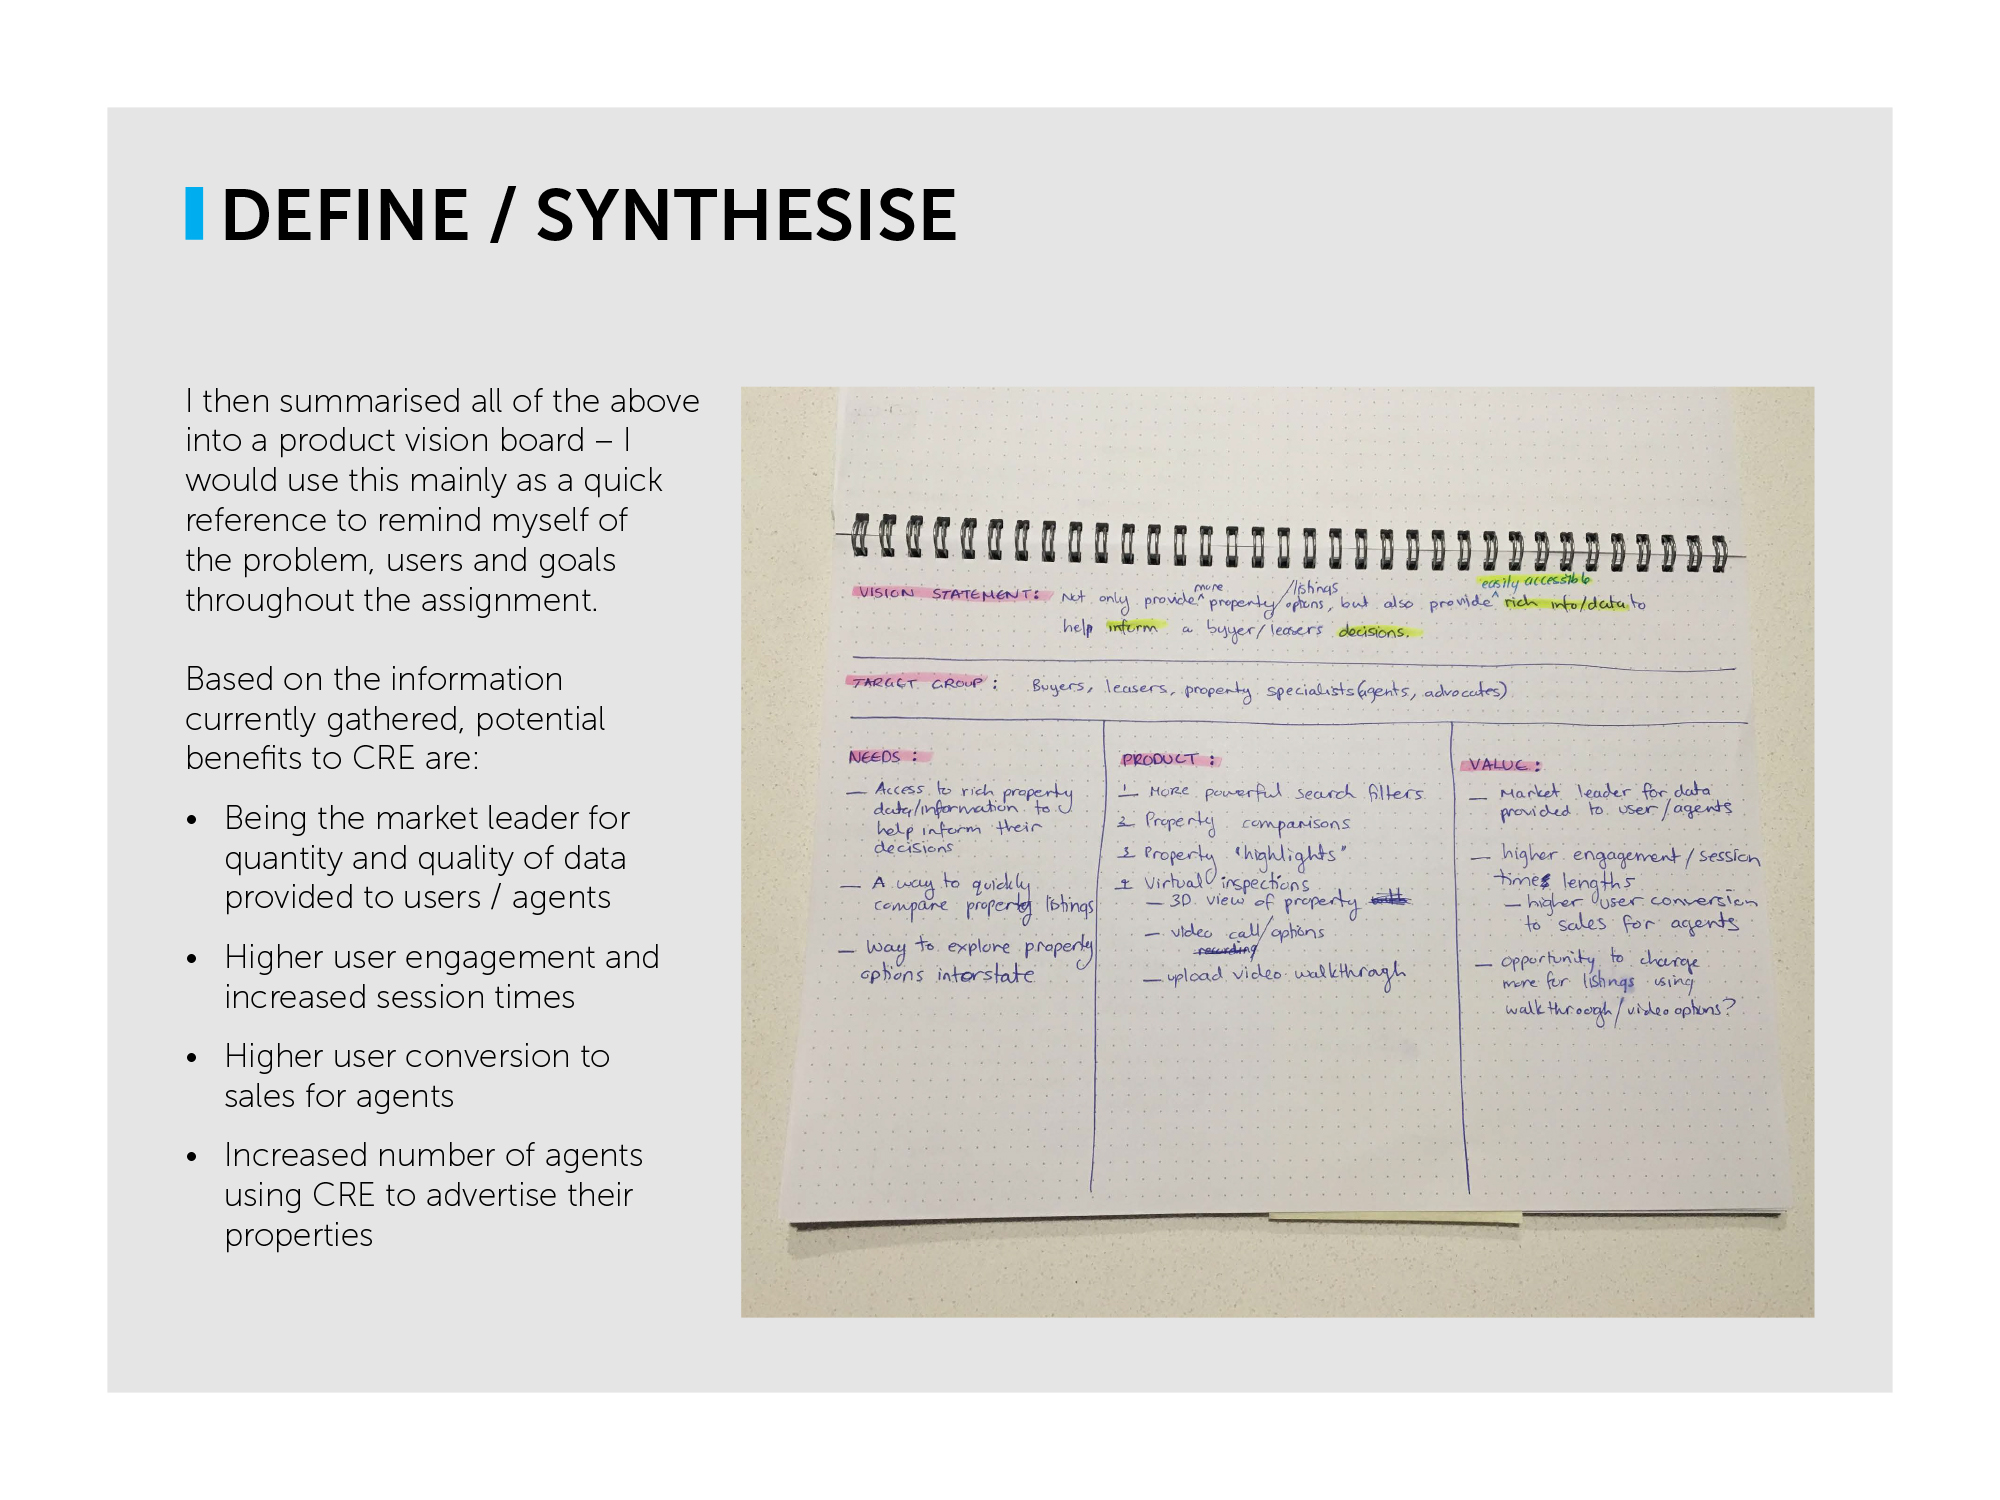 DEFINE / SYNTHESISE
I then summarised all of the above
into a product vision board – I
would use this mainly as a quick
reference to remind myself of
the problem, users and goals
throughout the assignment.
Based on the information
currently gathered, potential
benefits to CRE are:
• Being the market leader for
quantity and quality of data
provided to users / agents
• Higher user engagement and
increased session times
• Higher user conversion to
sales for agents
• Increased number of agents
using CRE to advertise their
properties
more /listings easily accessible
VISION STATEMENT: Not only provide^ property options, but also provide^ rich info/data to
help inform a buyer/leasers decisions.
TARGET GROUP: Buyers, leasers, property specialists (agents, advocates)
NEEDS:
— Access to rich property
data/information to
help inform their
decisions
— A way to quickly
compare property listings
— Way to explore property
options interstate
PRODUCT:
1 More powerful search filters
2 Property comparisons
3 Property "highlights"
4 Virtual inspections
— 3D view of property
— video call/options
recording
— upload video walkthrough
VALUE:
— Market leader for data
provided to user/agents
— higher engagement/session
time lengths
— higher user conversion
to sales for agents
— opportunity to charge
more for listings using
walkthrough/video options?